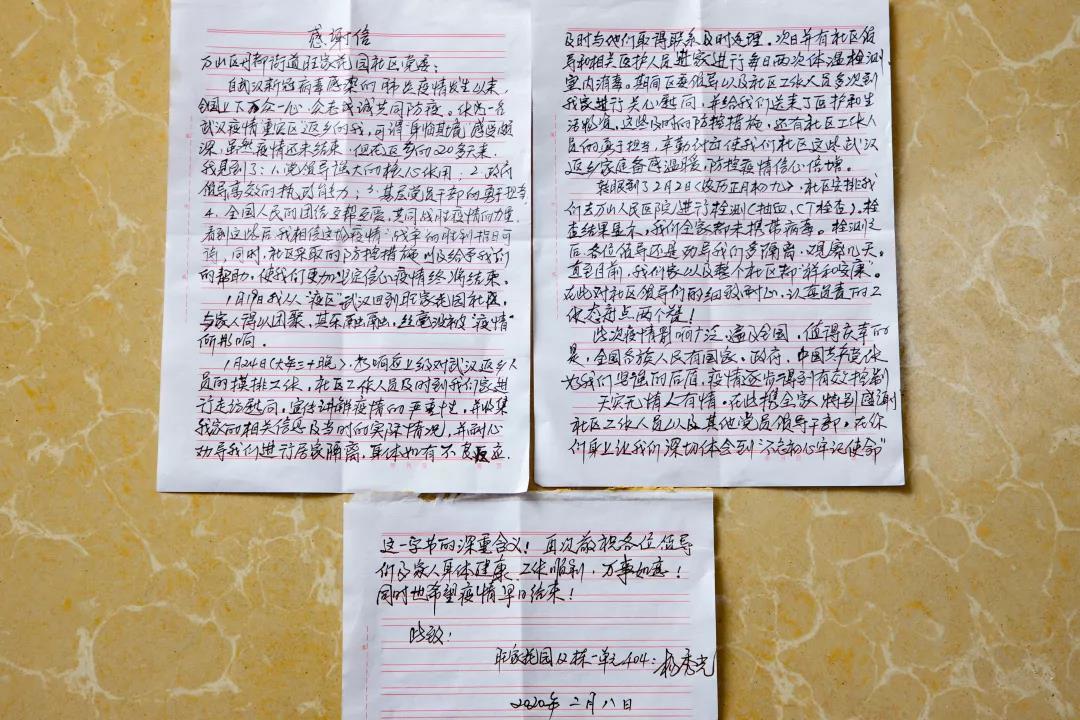 感谢信
万山区丹都街道旺家花园社区党委：
自武汉新冠病毒感染的肺炎疫情发生以来，
全国上下万众一心，众志成诚共同防疫。作为一名
武汉疫情重灾区返乡的我，可谓"身临其境"感受颇
深，虽然疫情还未结束，但在返乡的20多天来，
我见到了：1.党领导强大的核心作用；2.政府
领导高效的执政能力；3.基层党员干部的勇于担当
4、全国人民的团结互帮互爱、共同战胜疫情的力量
看到这些后我相信这场疫情"战争"的胜利指日可
待，同时，社区采取的防控措施以及给予我们
的帮助，使我们更加坚定信心疫情终将结束。
1月19日我从"疫区"武汉回到旺家花园社区，
与家人得以团聚，其乐融融，丝毫没被"疫情"
所影响。
1月24日(大年三十晚)，为响应上级对武汉返乡人
员的摸排工作，社区工作人员及时到我们家进
行走访慰问，宣传讲解疫情的严重性，并收集
我家的相关信息及当时的实际情况，并耐心
劝导我们进行居家隔离，身体如有不良反应，
及时与他们取得联系及时处理。次日并有社区领
导和相关医护人员进家进行每日两次体温检测，
室内消毒。期间区委领导以及社区工作人员多次到
我家进行关心慰问，并给我们送来了医护和生
活物资，这些及时的防控措施，还有社区工作人
员的勇于担当，辛勤付出使我们社区这些武汉
返乡家庭备感温暖，防控疫情信心倍增。
转眼到了2月2日(农历正月初九)，社区安排我
们去万山人民医院进行检测(抽血、CT检查)，检
查结果显示，我们全家都未携带病毒。检测之
后，各位领导还是劝导我们多隔离，观察几天。
直至目前，我们家以及整个社区都"祥和安康"。
在此对社区领导们的细致耐心，认真负责的工
作态度点两个赞！
此次疫情影响广泛，遍及全国，值得庆幸的
是，全国各族人民有国家、政府、中国共产党作
为我们坚强的后盾，疫情逐步得到有效控制
天灾无情人有情。在此携全家特别感谢
社区工作人员以及其他党员领导干部。在你
们身上让我们深切体会到"不忘初心牢记使命"
这一字节的深重含义！再次敬祝各位领导
们及家人身体健康、工作顺利，万事如意！
同时也希望疫情早日结束！
此致！
旺家花园 栋一单元404：杨秀光
2020年二月八日